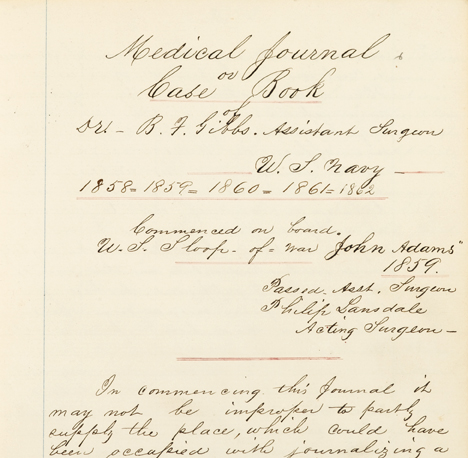 Medical Journal
or
Case Book
of
Dr. B. F. Gibbs. Assistant Surgeon
U. S. Navy
1858 = 1859 = 1860 = 1861 = 1862
Commenced on board.
U. S. Sloop - of = war John Adams"
1859.
Passed. Asst. Surgeon
Philip Lansdale
Acting Surgeon -
In commencing this Journal it
may not be improper to partly
supply the place, which could have
been occupied with journalizing a